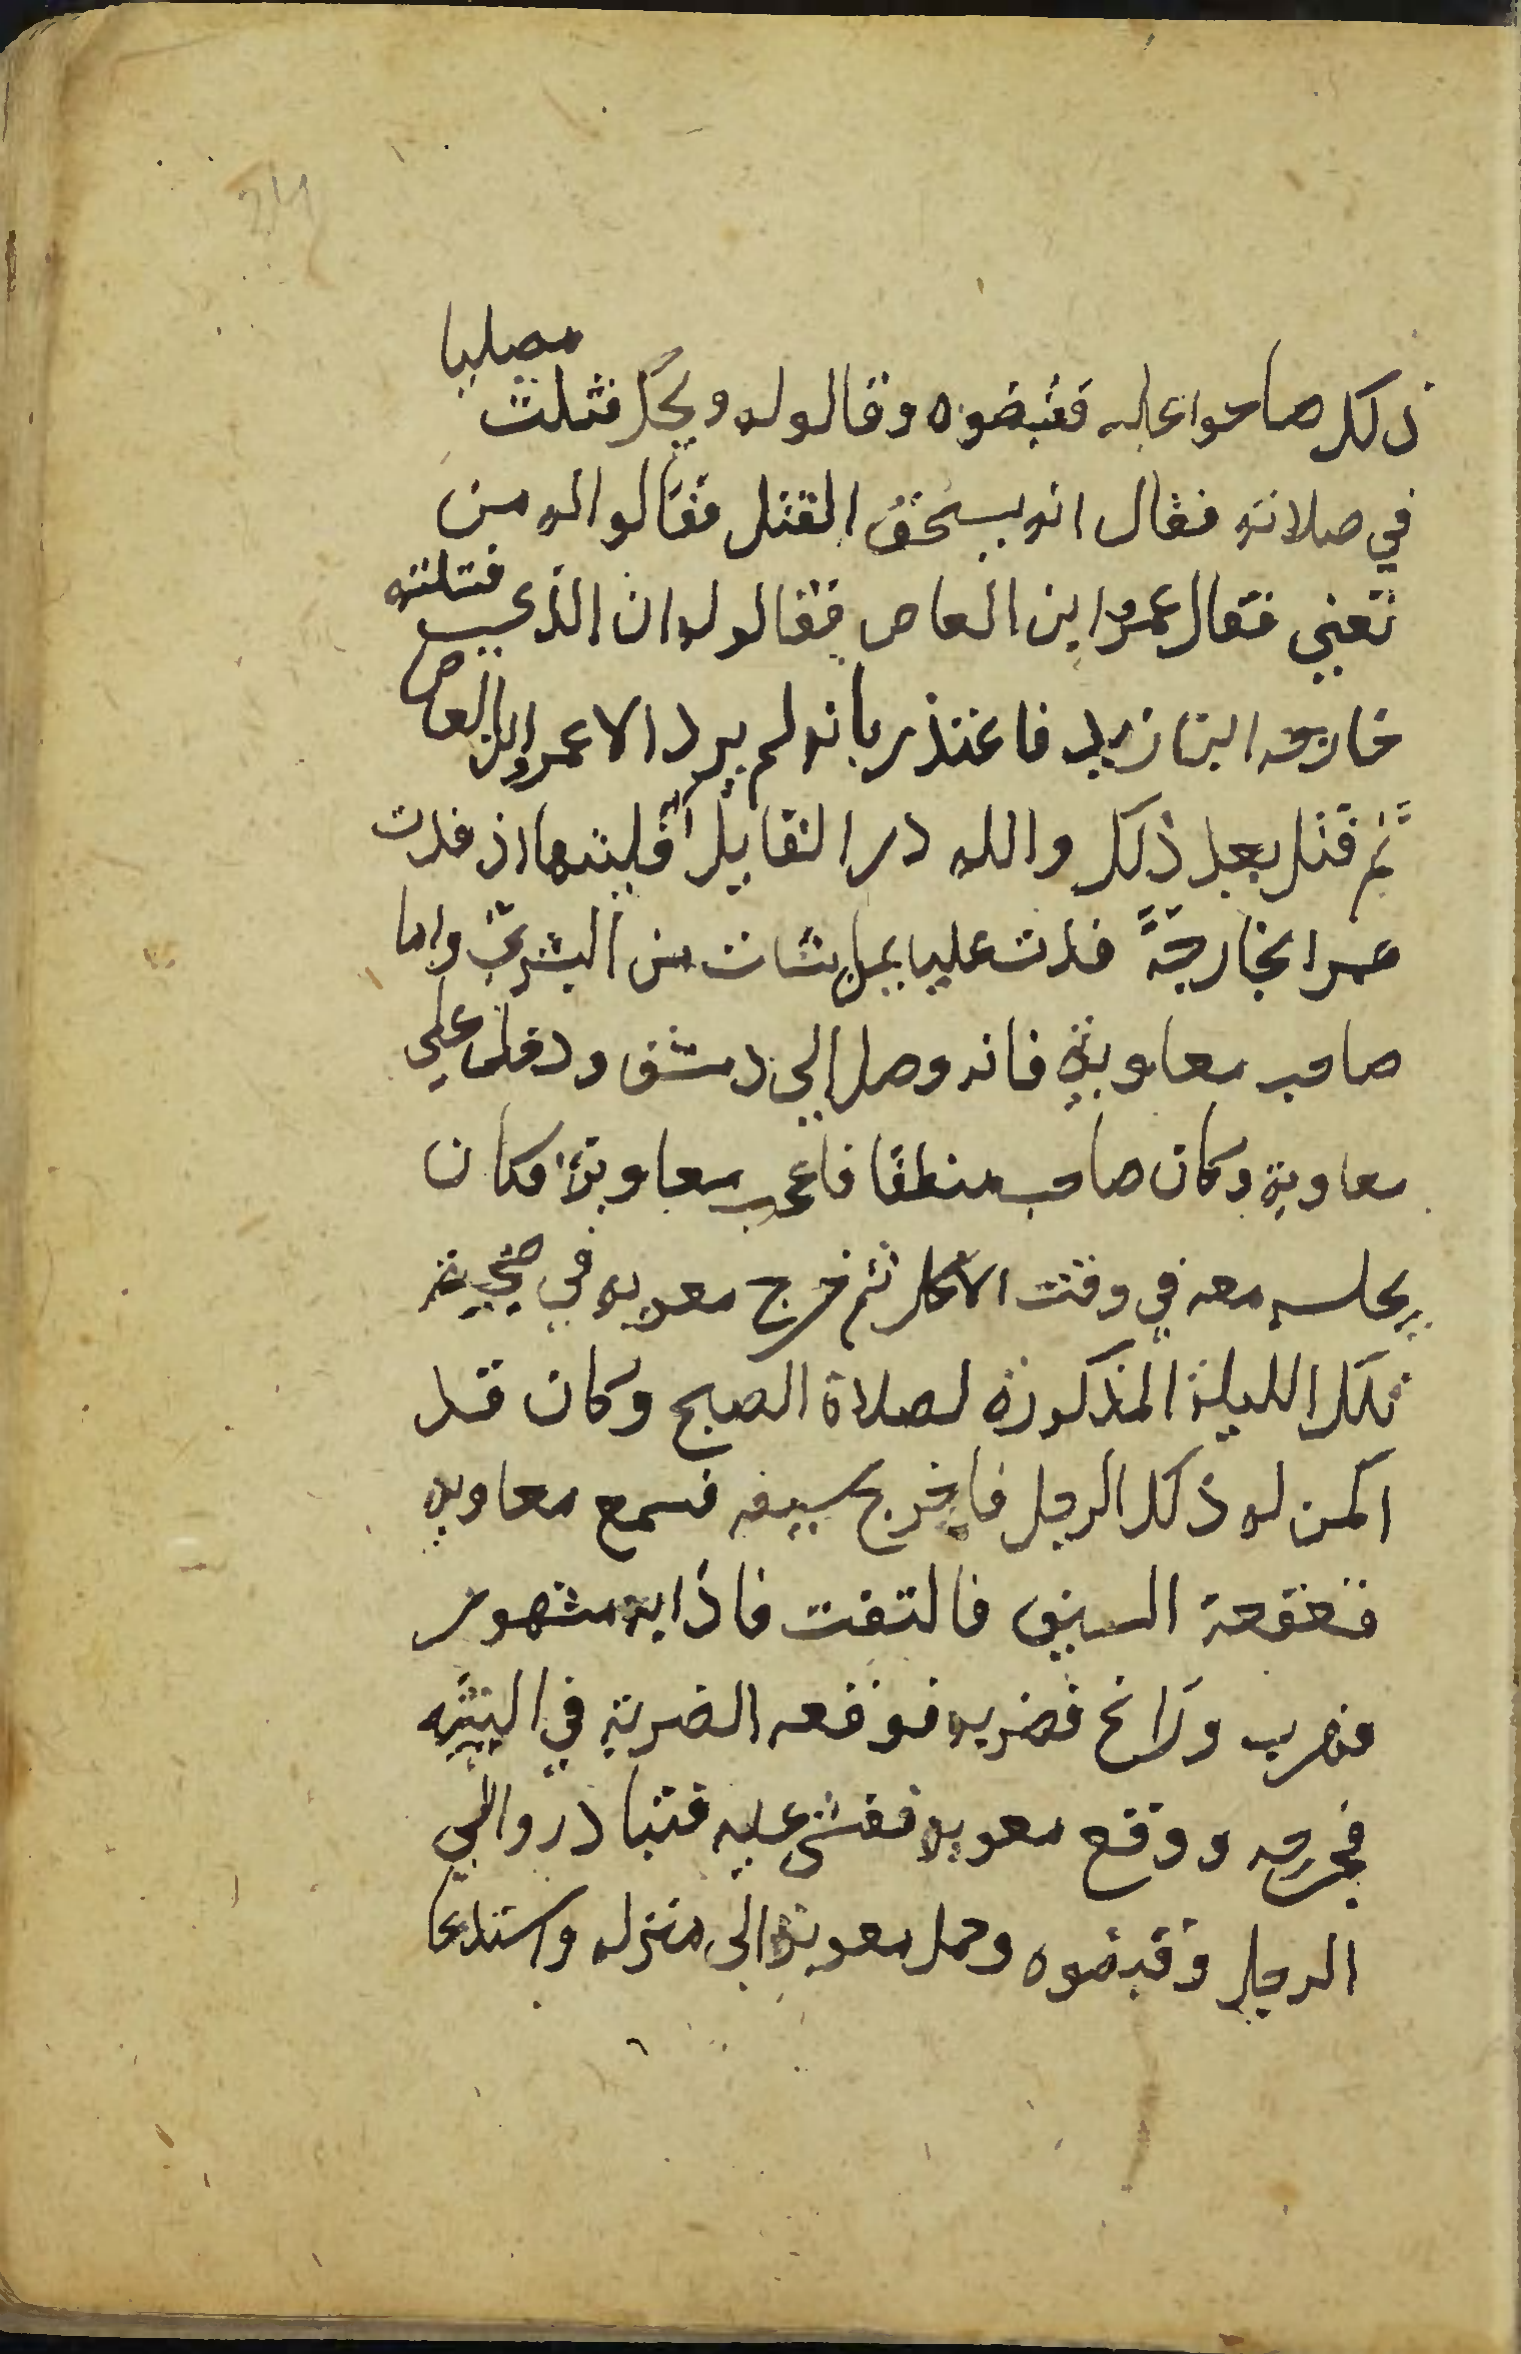 ذلك صاحوا عليه فقبضوه وقالو له ويحك قتلت مصليا
في صلاته فقال انه يستحق القتل فقالوا له من
تعني فقال عمرو ابن العاص فقالو له ان الذي قتلته
خارجه ابن زيد فاعتذر بانه لم يرد الا عمرو ابن العاص
ثم قتل بعد ذلك والله در القايل افليتها اذ فدت
عمرا بخارجةً فدت عليا بمن شات من البشر واما
صاحب معاوية فانه وصل الى دمشق ودخل على
معاوية وكان صاحب منطقا فاعجب معاوية فكان
يجلسه معه في وقت الاكل ثم خرج معويه في
تلك الليلة المذكورة لصلاة الصبح وكان قد
اكمن له ذلك الرجل فاخرج سيفه فسمع معاويه
قعقعة السيف فالتفت فاذا به مشهور
فهرب وراغ فضربه فوقعه الضربة في اليته
فجرحه ووقع معويه فغشي عليه فتبادروا الي
الرجل وقبضوه وحمل معوية الى منزله واستدعا